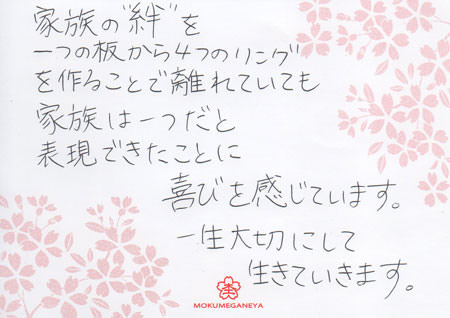 家族の"絆"を
一つの板から4つのリング
を作ることで離れていても
家族は一つだと
表現できたことに
喜びを感じています。
一生大切にして
生きていきます。
MOKUMEGANEYA